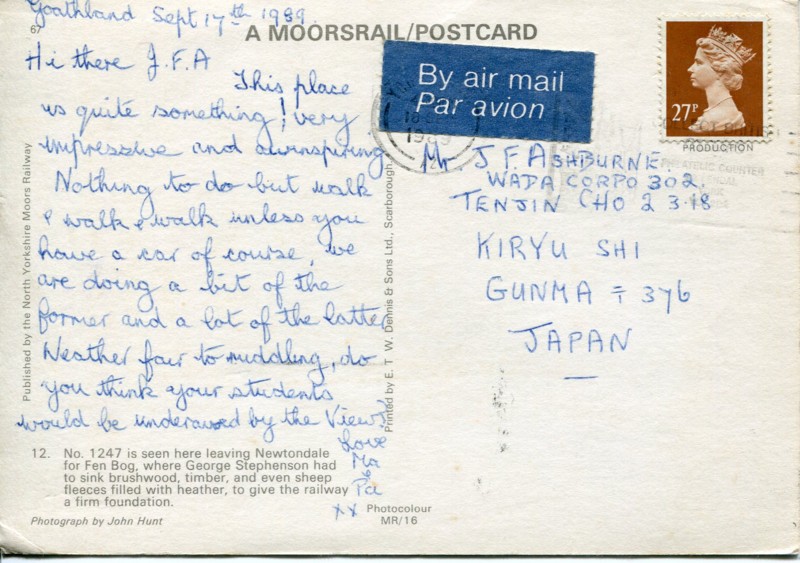 Goathland Sept 17th 1989.
67
A MOORSRAIL/POSTCARD
Hi there J.F.A
This place
is quite something! very
impressive and awinspiring
Nothing to do but walk
& walk & walk unless you
have a car of course, we
are doing a bit of the
former and a lot of the latter
Weather fair to middling, do
you think your students
would be underawed by the View?
Love
Ma
&
Pa
xx
By air mail
Par avion
1989
27P
Mr J F ASHBURNE.
WADA CORPO 302.
TENJIN CHO 2 3-18
KIRYU SHI
GUNMA 〒 376
JAPAN
PRODUCTION
PHILATELIC COUNTER
Published by the North Yorkshire Moors Railway
Printed by E. T. W. Dennis & Sons Ltd., Scarborough
12. No. 1247 is seen here leaving Newtondale
for Fen Bog, where George Stephenson had
to sink brushwood, timber, and even sheep
fleeces filled with heather, to give the railway
a firm foundation.
Photograph by John Hunt
Photocolour
MR/16